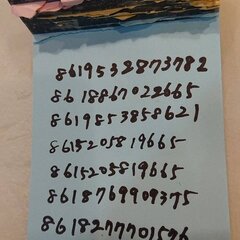 8619532873782
8618867022665
8619853858621
8615205819665
8615205819665
8618769909375
8618277701526